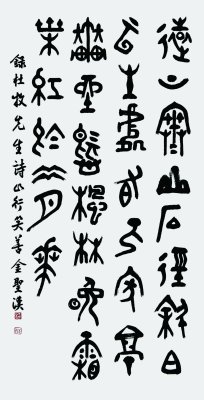 遠上寒山石徑斜白
云生處有人家亭
車坐愛楓林晚霜
葉紅於二月花
錄杜牧先生詩山行 金聖漢